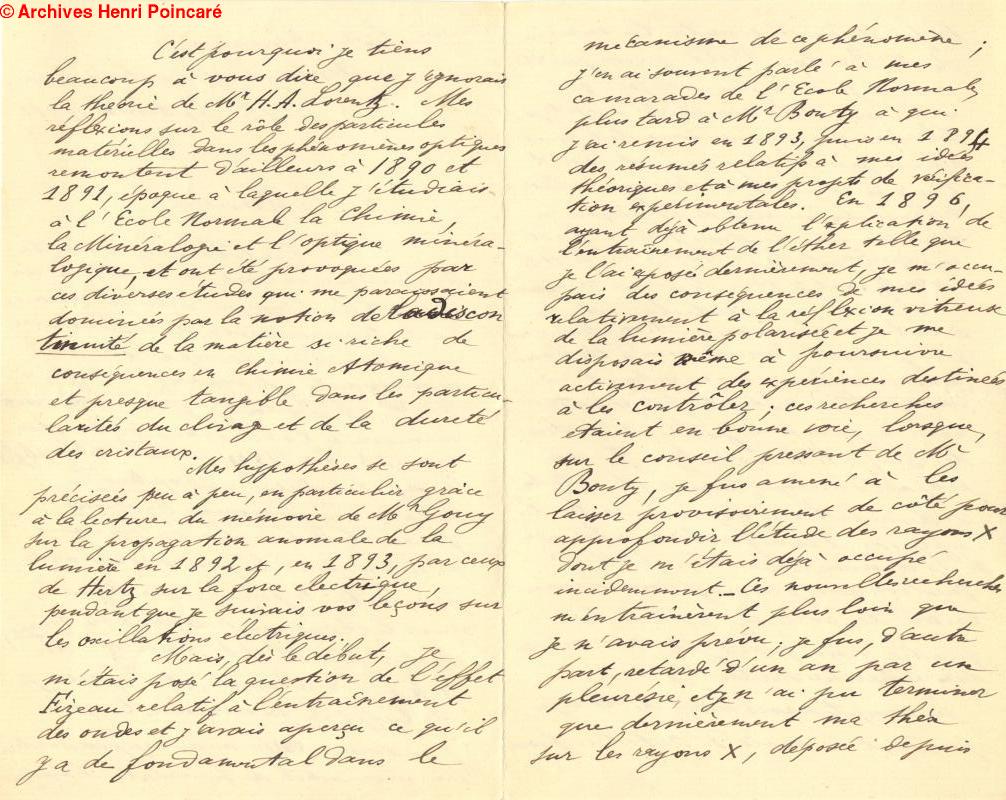 © Archives Henri Poincaré
C'est pourquoi je tiens
beaucoup à vous dire que j'ignorais
la théorie de Mr H.A. Lorentz. Mes
réflexions sur le rôle des particules
matérielles dans les phénomènes optiques
remontent d'ailleurs à 1890 et
1891, époque à laquelle j'étudiais
à l'Ecole Normale la Chimie,
la Minéralogie et l'optique minéra-
logique, et ont été provoquées par
ces diverses études qui me paraissaient
dominées par la notion de la discon
tinuité de la matière si riche de
conséquences en Chimie Atomique
et presque tangible dans les particu-
larités du clivage et de la dureté
des cristaux.
Mes hypothèses se sont
précisées peu à peu, en particulier grâce
à la lecture du mémoire de Mr Gouy
sur la propagation anomale de la
lumière en 1892 et, en 1893, par ceux
de Hertz sur la force électrique,
pendant que je suivais vos leçons sur
les oscillations électriques.
Mais, dès le début, je
m'étais posé la question de l'effet
Fizeau relatif à l'entraînement
des ondes et j'avais aperçu ce qu'il
y a de fondamental dans le
mécanisme de ce phénomène ;
j'en ai souvent parlé à mes
camarades de l'Ecole Normale,
plus tard à Mr Bouty à qui
j'ai remis en 1893, puis en 1894
des résumés relatifs à mes idées
théoriques et à mes projets de vérifica-
tion expérimentales. En 1896,
ayant déjà obtenu l'explication de
l'entraînement de l'éther telle que
je l'ai exposée dernièrement, je m'occu-
pais des conséquences de mes idées
relativement à la réflexion vitreuse
de la lumière polarisée et je me
disposais même à poursuivre
activement des expériences destinées
à les contrôler ; ces recherches
étaient en bonne voie, lorsque,
sur le conseil pressant de Mr
Bouty, je fus amené à les
laisser provisoirement de côté pour
approfondir l'étude des rayons X
dont je m'étais déjà occupé
incidemment. – Ces nouvelles recherches
m'entraînèrent plus loin que
je n'avais prévu ; je fus, d'autre
part, retardé d'un an par une
pleurésie, et je n'ai pu terminer
que dernièrement ma thèse
sur les rayons X, déposée depuis